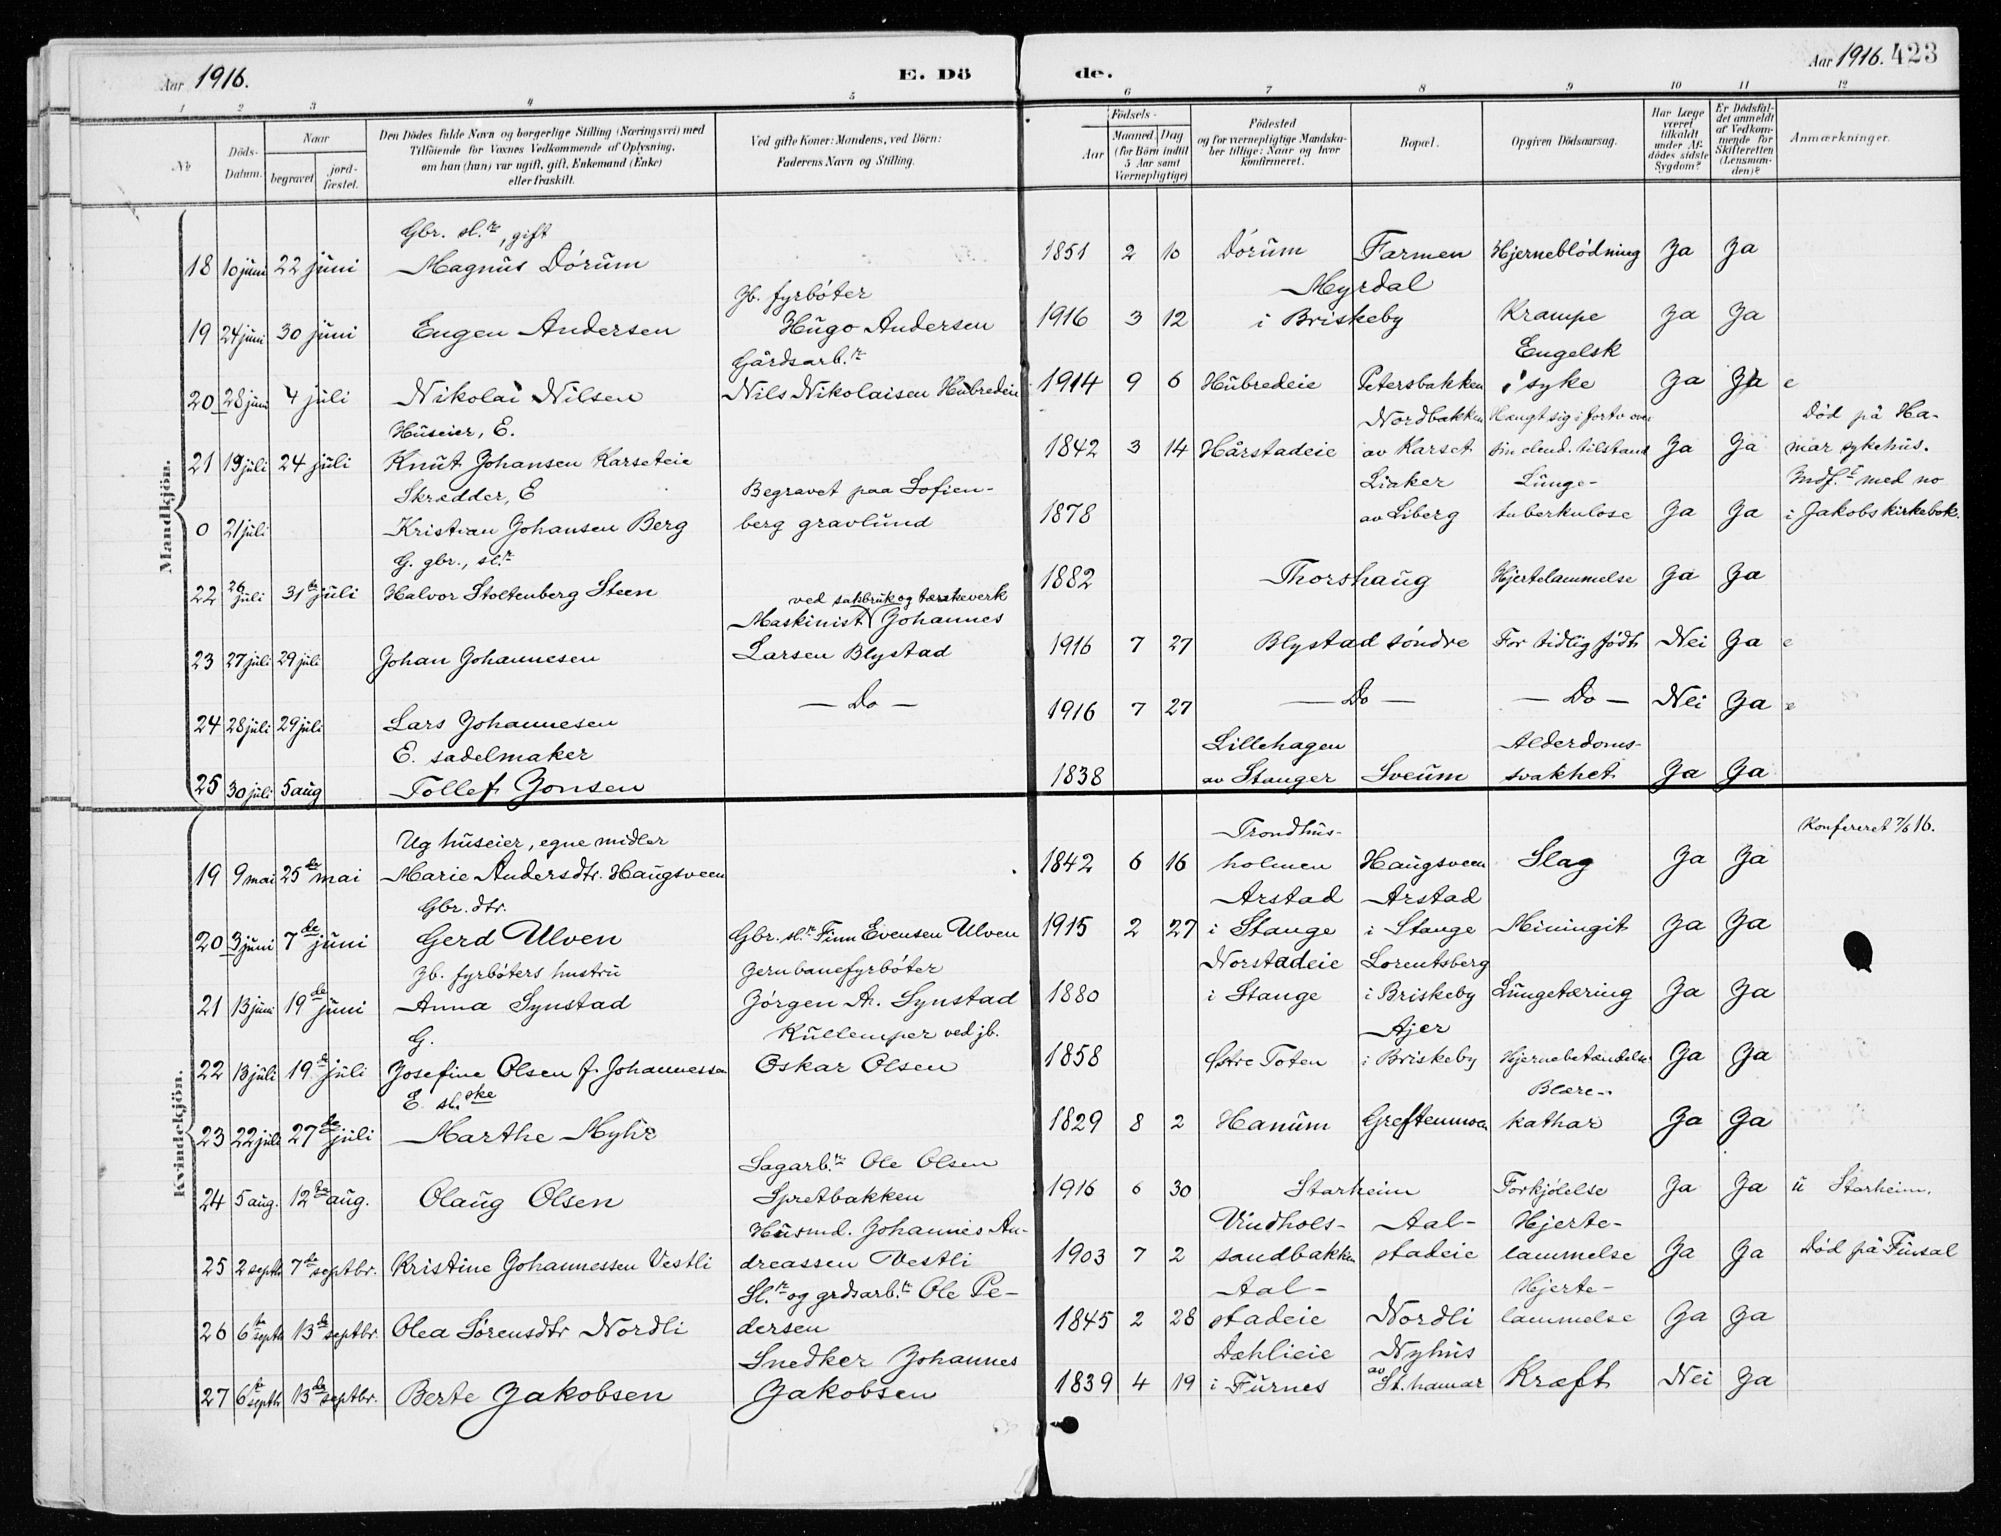 Aar 1916. E. Dö de. Aar 1916. 423
1 2 3 4 5 6 7 8 9 10 11 12
No
Döds-Datum.
Naar
begravet
jord-fæstet.
Den Dödes fulde Navn og borgerlige Stilling (Næringsvei) med
Tilföiende for Voxnes Vedkommende af Oplysning,
om han (hun) var ugift, gift, Enkemand (Enke)
eller fraskilt.
Ved gifte Koner: Mandens, ved Börn:
Faderens Navn og Stilling.
Födsels-
Aar
Maaned Dag
(for Börn indtil
5 Aar samt
Værnepligtige)
Födested
og for værnepligtige Mandska-
ber tillige: Naar og hvor
konfirmeret.
Bopæl.
Opgiven Dödsaarsag.
Har Læge
været
tilkaldt
under Af-
dödes sidste
Sygdom?
Er Dödsfal-
det anmeldt
af Vedkom-
mende for
Skifteretten
(Lensman-
den)?
Anmærkninger.
Mandkjön.
Gbr. sl.r, gift
18 10 juni 22 juni Magnus Dórum 1851 2 10 Dórum Farmen Hjerneblódning Ja Ja
Jb. fyrbóter Myrdal
19 24 juni 30 juni Eugen Andersen Hugo Andersen 1916 3 12 i Briskeby Krampe Ja Ja
Gårdsarb.r Engelsk
20 28 juni 4 juli Nikolai Nilsen Nils Nikolaisen Hubredeie 1914 9 6 Hubredeie Petersbakken syke Ja Ja e
Huseier, E. Nordbakken Hængt sig i fortv. over Död på Ha-
21 19 juli 24 juli Knut Johansen Karseteie 1842 3 14 Hårstadeie av Karset sin elend. tilstand Ja Ja mar sykehus.
Skrædder, E Begravet paa Sofien- Liaker Lunge- Mdf.t med no
0 21 juli Kristian Johansen Berg berg gravlund 1878 av Liberg tuberkulose Ja Ja i Jakobs kirkebok.
G. gbr., sl.r
22 26 juli 31te juli Halvor Stoltenberg Steen 1882 Thorshaug Hjertelammelse Ja Ja
ved sakbruk og tærskeverk
Maskinist Johannes
23 27 juli 29 juli Johan Johannesen Larsen Blystad 1916 7 27 Blystad söndre For tidlig födt Nei Ja e
24 28 juli 29 juli Lars Johannesen — Do — 1916 7 27 — Do — — Do — Nei Ja e
E. sadelmaker Lillehagen Alderdoms-
25 30 juli 5 aug Tollef Jonsen 1838 av Stanger Sveum svakhet Ja Ja
Kvindekjön.
Ug huseier, egne midler Trondhus- Konfereret 7/6 16.
19 9 mai 25de mai Marie Andersdtr. Haugsveen 1842 6 16 holmen Haugsveen Slag Ja Ja
Gbr. dtr. Arstad Arstad
20 3 juni 7de juni Gerd Ulven Gbr. sl.r Finn Evensen Ulven 1915 2 27 i Stange i Stange Miningit Ja Ja
Jb. fyrbóters hustru Jernbanefyrbóter Norstadeie Lorentsberg
21 13 juni 19de juni Anna Synstad Jörgen A. Synstad 1880 i Stange i Briskeby Lungetæring Ja Ja
G. Kullemper ved jb. Ajer
22 13 juli 19de juli Josefine Olsen f. Johannessen Oskar Olsen 1858 Östre Toten i Briskeby Hjernebetændelse Ja Ja
E. sl.ske Blære-
23 22 juli 27de juli Marthe Myhr 1829 8 2 Hanum Greftenmoen kathar Ja Ja
Sagarb.r Ole Olsen
24 5 aug. 12te aug. Olaug Olsen Spretbakken 1916 6 30 Starheim Forkjölelse Ja Ja u Starheim.
Husmd. Johannes An- Vindhols- Aal- Hjerte-
25 2 septbr 7de septbr. Kristine Johannessen Vestli dreassen Vestli 1903 7 2 sandbakken stadeie lammelse Ja Ja Död på Fursal
Sl.r og grdsarb.r Ole Pe- Aal- Hjerte-
26 6te septbr 13de septbr. Olea Sörensdtr Nordli dersen 1845 2 28 stadeie Nordli lammelse Ja Ja
Snedker Johannes Dahlieie Nyhus
27 6te septbr 13de septbr. Berte Jakobsen Jakobsen 1839 4 19 i Furnes av St. hamar Kræft Nei Ja